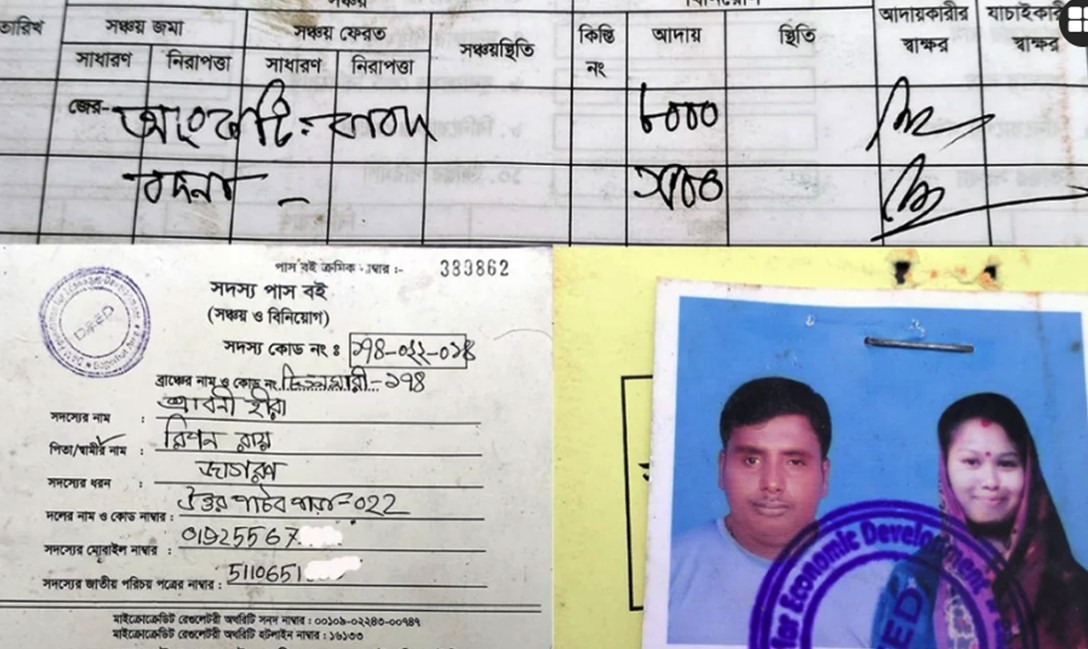 সঞ্চয়
তারিখ সঞ্চয় জমা সঞ্চয় ফেরত সঞ্চয়স্থিতি কিস্তি নং আদায় স্থিতি আদায়কারীর স্বাক্ষর যাচাইকারী স্বাক্ষর
সাধারণ নিরাপত্তা সাধারণ নিরাপত্তা
জের- ৮০০০
পাস বই ক্রমিক নাম্বার :- 383862
সদস্য পাস বই
(সঞ্চয় ও বিনিয়োগ)
সদস্য কোড নং : ১৭৪-০২২-০১৪
ব্রাঞ্চের নাম ও কোড নং চিতলমারী-১৭৪
সদস্যের নাম : শ্রাবনী হীরা
পিতা/স্বামীর নাম : রিপন রায়
সদস্যের ধরন : জাগরণ
দলের নাম ও কোড নাম্বার : উত্তর পাড়া-০২২
সদস্যের মোবাইল নাম্বার : 01925567
সদস্যের জাতীয় পরিচয় পত্রের নাম্বার : 5110651
মাইক্রোক্রেডিট রেগুলেটরী অথরিটি সনদ নাম্বার : ০০১০৯-০২২৪০-০০৭৪৭
মাইক্রোক্রেডিট রেগুলেটরী অথরিটি হটলাইন নাম্বার : ১৬১৩৩
for Economic Development